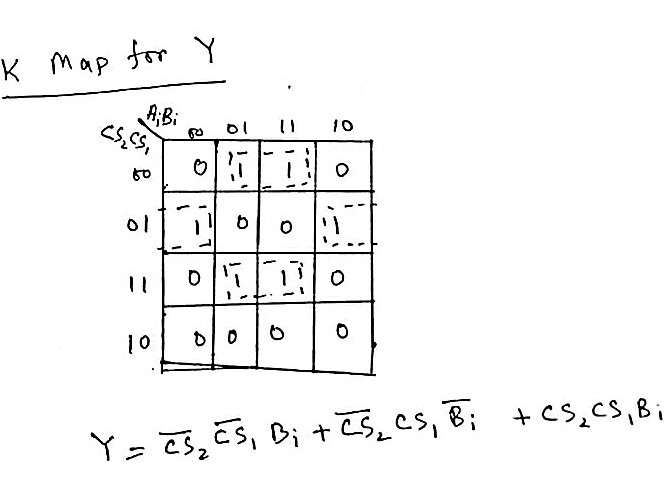 K Map for Y
AiBi
CS₂CS₁ 00 01 11 10
00 0 1 1 0
01 1 0 0 1
11 0 1 1 0
10 0 0 0 0
Y = C̅S̅₂ C̅S̅₁ Bi + C̅S̅₂ CS₁ B̅i + CS₂CS₁Bi